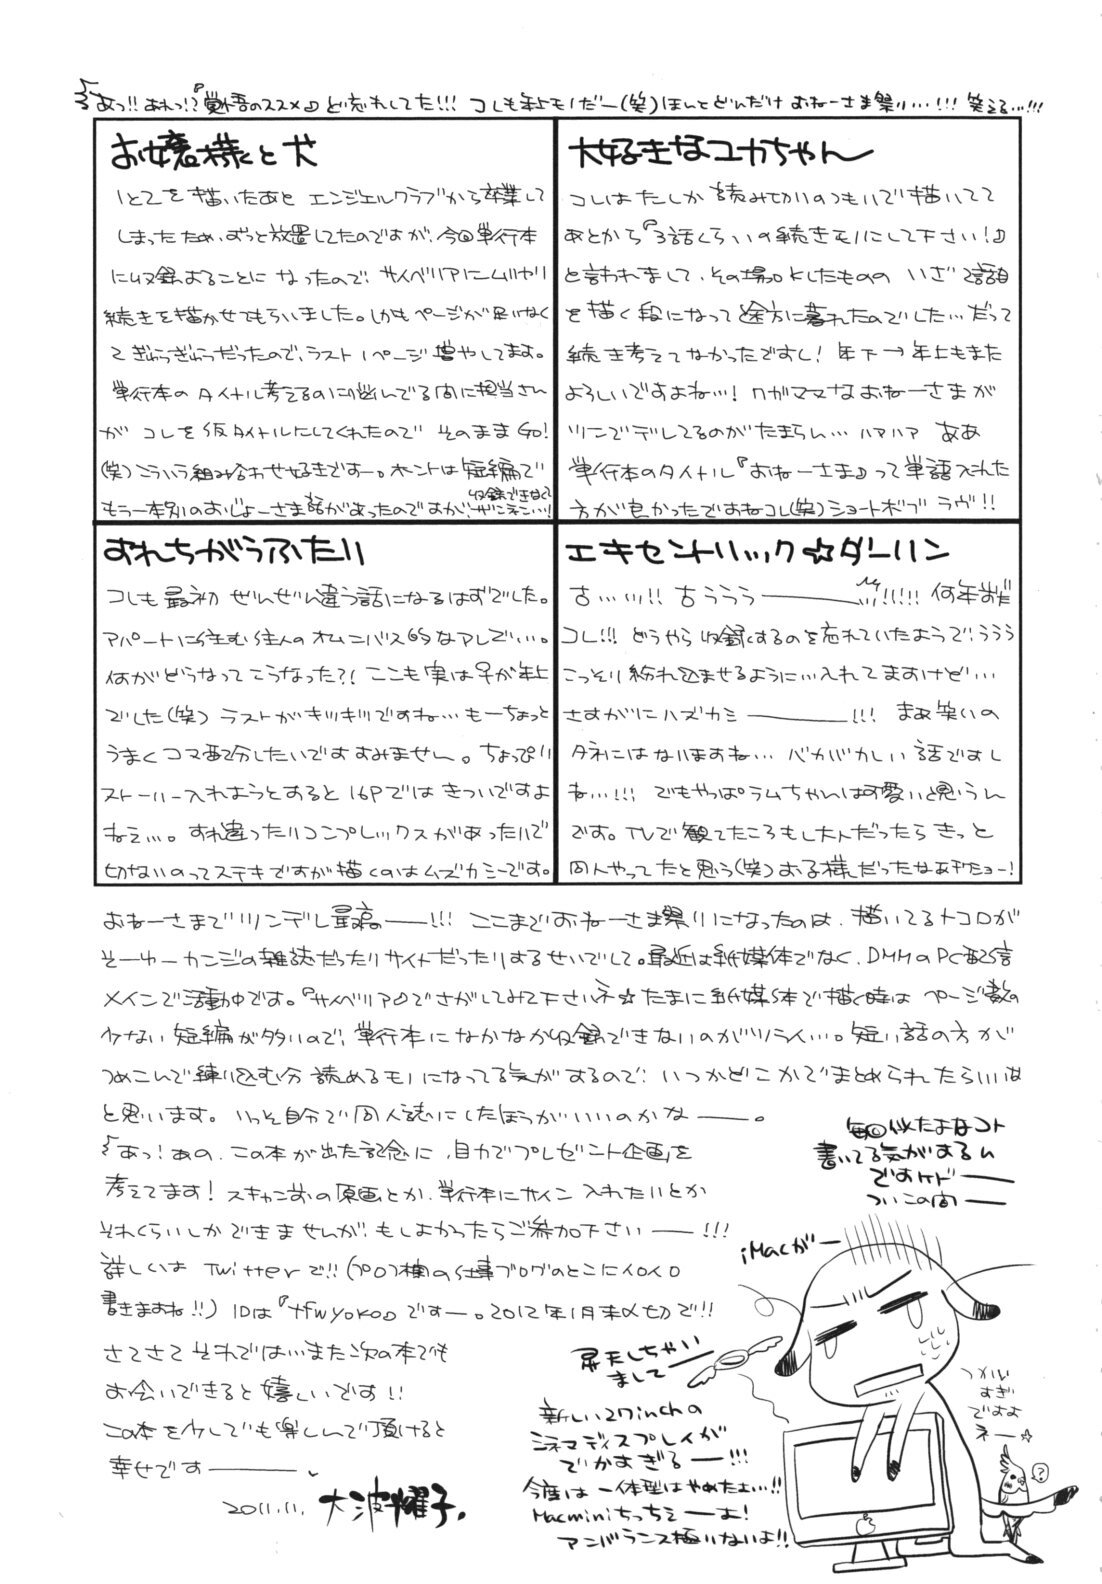 あっ!! あれっ!?『覚悟のススメ』ど忘れしてた!!! コレも年上モノだー(笑)ほんとどんだけおねーさま祭り…!!! 笑える…!!!
お嬢様と犬
1とてを描いたあと エンジェルクラブから卒業して
しまったため、ずっと放置してたのですが、今回単行本
に収録することになったので、サイベリアにムリヤリ
続きを描かせてもらいました。しかもページが足りなく
てぎゅうぎゅうだったので、ラスト1ページ増やしてます。
単行本のタイトル考えるのに悩んでる間に担当さん
が コレを仮タイトルにしてくれたので そのままGO!
(笑)こういう組み合わせ好きですー。ホントは短編で
もう一本別のおじょーさま話があったのですが、収録できなくてザンネン…!
大好きなユカちゃん
コレはたしか読み切りのつもりで描いてて
あとから『3話くらいの続きモノにして下さい!』
と言われまして、その場OKしたものの いざ2話目
を描く段になって途方に暮れたのでした…だって
続き考えてなかったですし! 年下→年上もまた
よろしいですよね…! ワガママなおねーさまが
ツンでデレてるのがたまらん…ハアハア ああ
単行本のタイトル『おねーさま』って単語入れた
方が良かったですねコレ(笑)ショートボブ ラヴ!!
すれちがうふたり
コレも最初ぜんぜん違う話になるはずでした。
アパートに住む住人のオムニバス的なアレで…。
何がどうなってこうなった?! ここも実は♀が年上
でした(笑) ラストがキツキツですね…もーちょっと
うまくコマ配分したいですすみません。ちょっぴり
ストーリー入れようとすると16Pではきついですよ
ねぇ…。すれ違ったりコンプレックスがあったりで
切ないのってステキですが描くのはムズカシーです。
エキセントリック☆ダーリン
古…ッ!! 古うううーーッ!!!!! 何年前だ
コレ!!! どうやら収録するのを忘れていたようで、ううう
こっそり紛れ込ませるように…入れてますけど…
さすがにハズカシーー!!! まあ笑いの
タネにはなりますね… バカバカしい話ですし
ね…!!! でもやっぱラムちゃんは可愛いと思うん
です。TVで観てたころもし大人だったらきっと
同人やってたと思う(笑)お子様だったなあチクショー!
おねーさまでツンデレ最高ーー!!! ここまでおねーさま祭りになったのは、描いてるトコロが
そーゆーカンジの雑誌だったりサイトだったりするせいでして。最近は紙媒体でなく、DMMのPC配信
メインで活動中です。『サイベリア』でさがしてみて下さいネ☆たまに紙媒体で描く時はページ数の
少ない短編が多いので、単行本になかなか収録できないのがツライ…。短い話の方が
つめこんで練り込む分読めるモノになってる気がするので、いつかどこかでまとめられたらいいなぁ
と思います。いっそ自分で同人誌にしたほうがいいのかなーー。
あっ!あの、この本が出た記念に、自力でプレゼント企画を
考えてます! スキャン前の原画とか、単行本にサイン入れたいとか
それくらいしかできませんが、もしよかったらご参加下さいーー!!!
詳しくは Twitterで!!(プロフ欄の仕事ブログのとこにイロイロ
書きますね!!) IDは『tfwyoko』ですー。2012年1月末〆切で!!
さてさて それでは…また次の本でも
お会いできると嬉しいです!!
この本を少しでも楽しんで頂けると
幸せですーー、
2011.11. 大波耀子.
毎回似たよなコト
書いてる気がするん
ですケドー
ついこの間ー
iMacがー
昇天しちゃい
まして
新しい27inchの
シネマディスプレイが
でかすぎるー!!!
今度は一体型はやめたよ…!!
Macminiちっちぇーよ!
アンバランス極りないよ!!
つかい
すぎ
ですよ
ネー☆
?